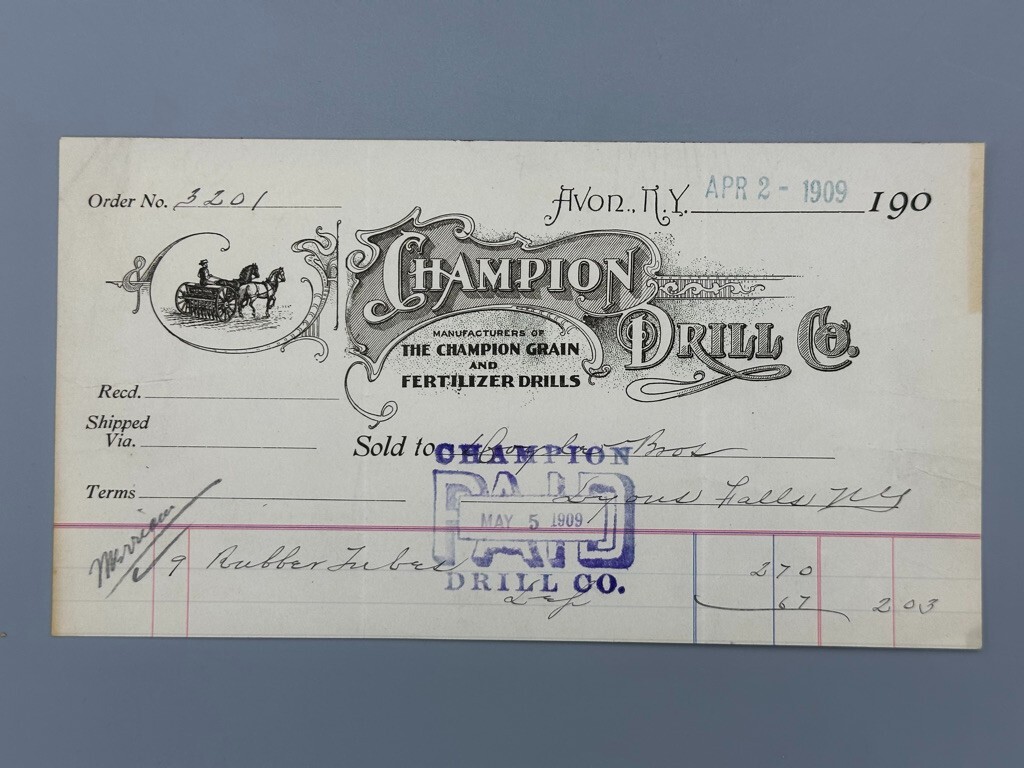 Order No. 3201
Avon., N.Y. APR 2 - 1909 190
CHAMPION
DRILL Co.
MANUFACTURERS OF
THE CHAMPION GRAIN
AND
FERTILIZER DRILLS
Recd.
Shipped
Via.
Sold to Bros
Terms Lyons Falls NY
CHAMPION
PAID
MAY 5 1909
DRILL CO.
9 Rubber Tubes 270
67 203